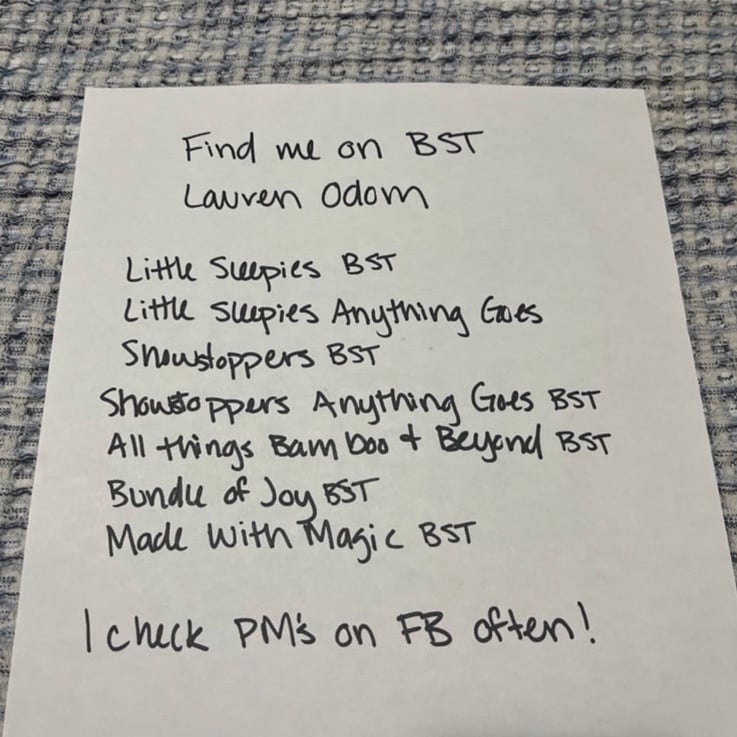 Find me on BST
Lauren Odom
Little Sleepies BST
Little Sleepies Anything Goes
Showstoppers BST
Showstoppers Anything Goes BST
All things Bamboo + Beyond BST
Bundle of Joy BST
Made With Magic BST
I check PM's on FB often!